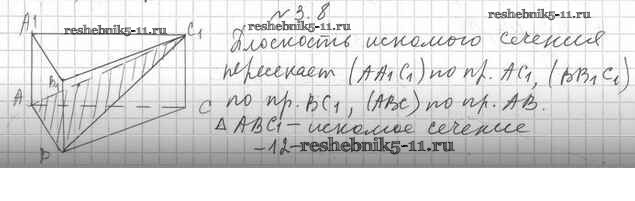 № 3.8
A1
C1
reshebnik5-11.ru
reshebnik5-11.ru
reshebnik5-11.ru
Плоскость искомого сечения
B1
пересекает (AA1C1) по пр. AC1, (BB1C1)
A
C
по пр. BC1, (ABC) по пр. AB.
Δ ABC1 – искомое сечение
B
-12-
reshebnik5-11.ru